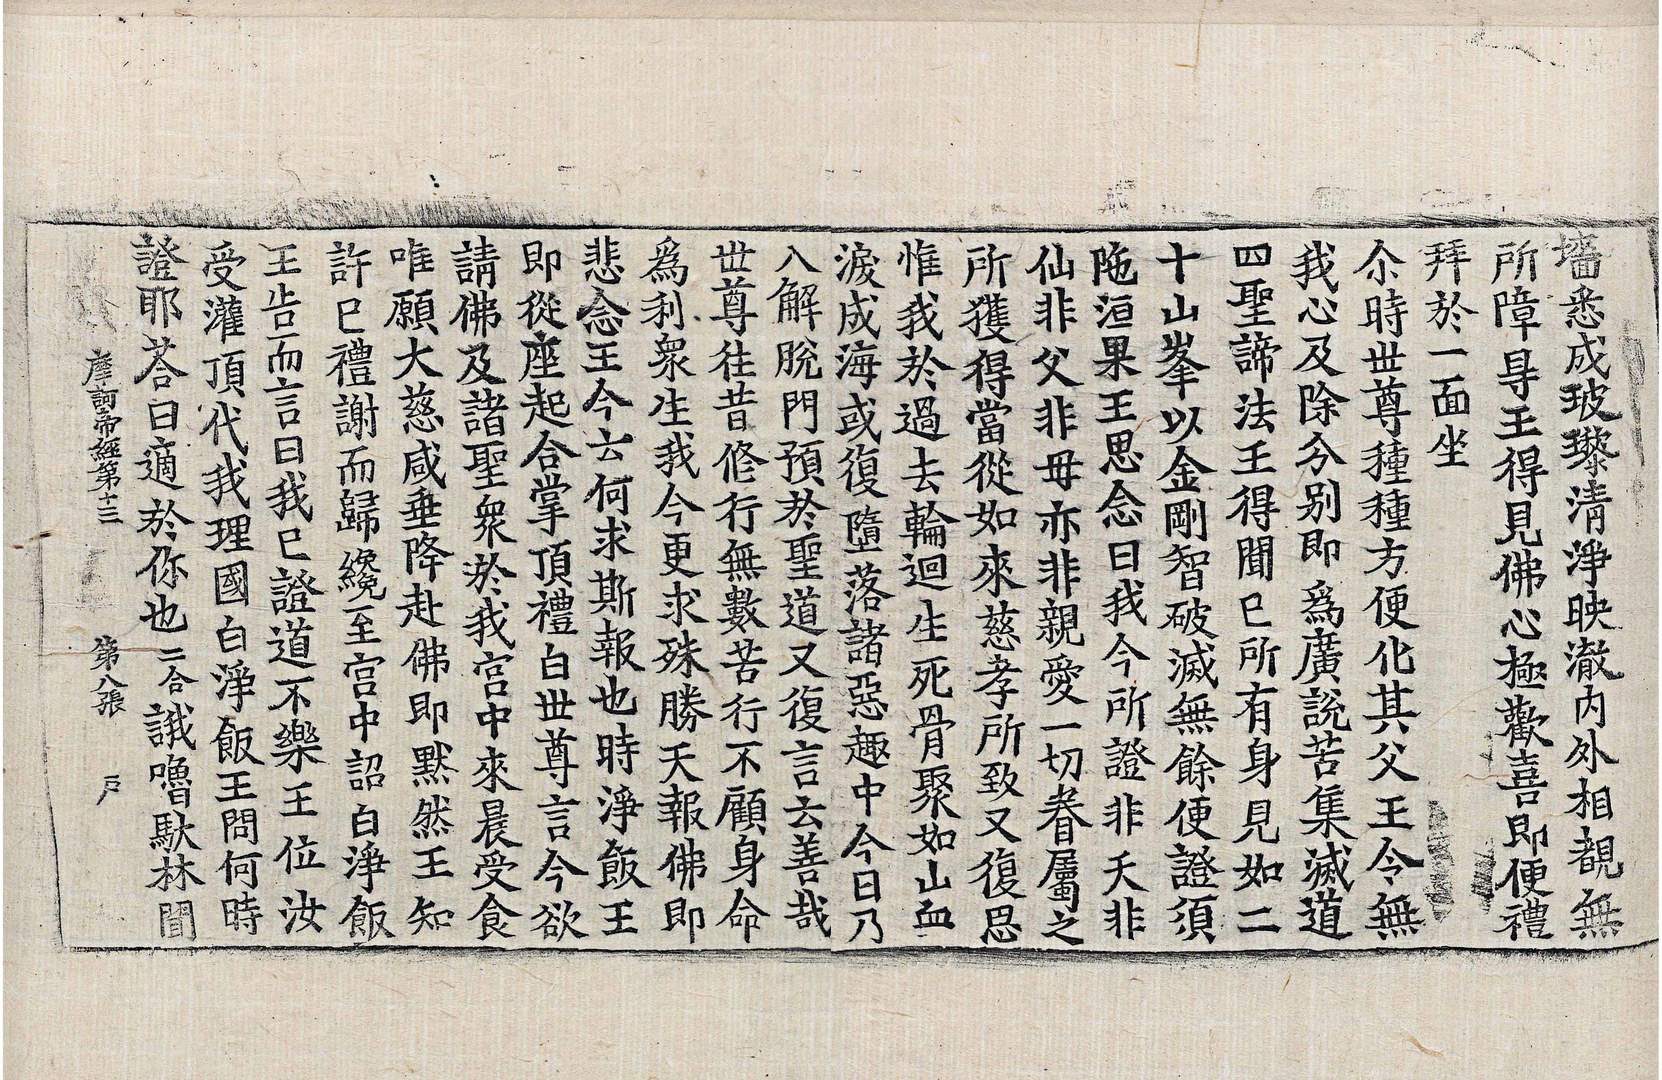 墻悉成玻瓈清淨映澈内外相覩無
所障㝵王得見佛心極歡喜即便禮
拜於一面坐
尒時世尊種種方便化其父王令無
我心及除分别即爲廣說苦集滅道
四聖諦法王得聞已所有身見如二
十山峯以金剛智破滅無餘便證須
陁洹果王思念曰我今所證非天非
仙非父非母亦非親愛一切眷屬之
所獲得當從如來慈孝所致又復思
惟我於過去輪迴生死骨聚如山血
淚成海或復墮落諸惡趣中今日乃
入解脫門預於聖道又復言云善哉
世尊往昔修行無數苦行不顧身命
爲利衆生我今更求殊勝天報佛即
悲念王今云何求斯報也時淨飯王
即從座起合掌頂禮白世尊言今欲
請佛及諸聖衆於我宮中來晨受食
唯願大慈咸垂降赴佛即默然王知
許已禮謝而歸纔至宮中詔白淨飯
王告而言曰我已證道不樂王位汝
受灌頂代我理國白淨飯王問何時
證耶荅曰適於你也二合誐嚕馱林聞
摩訶帝經第十三 第八張 戶